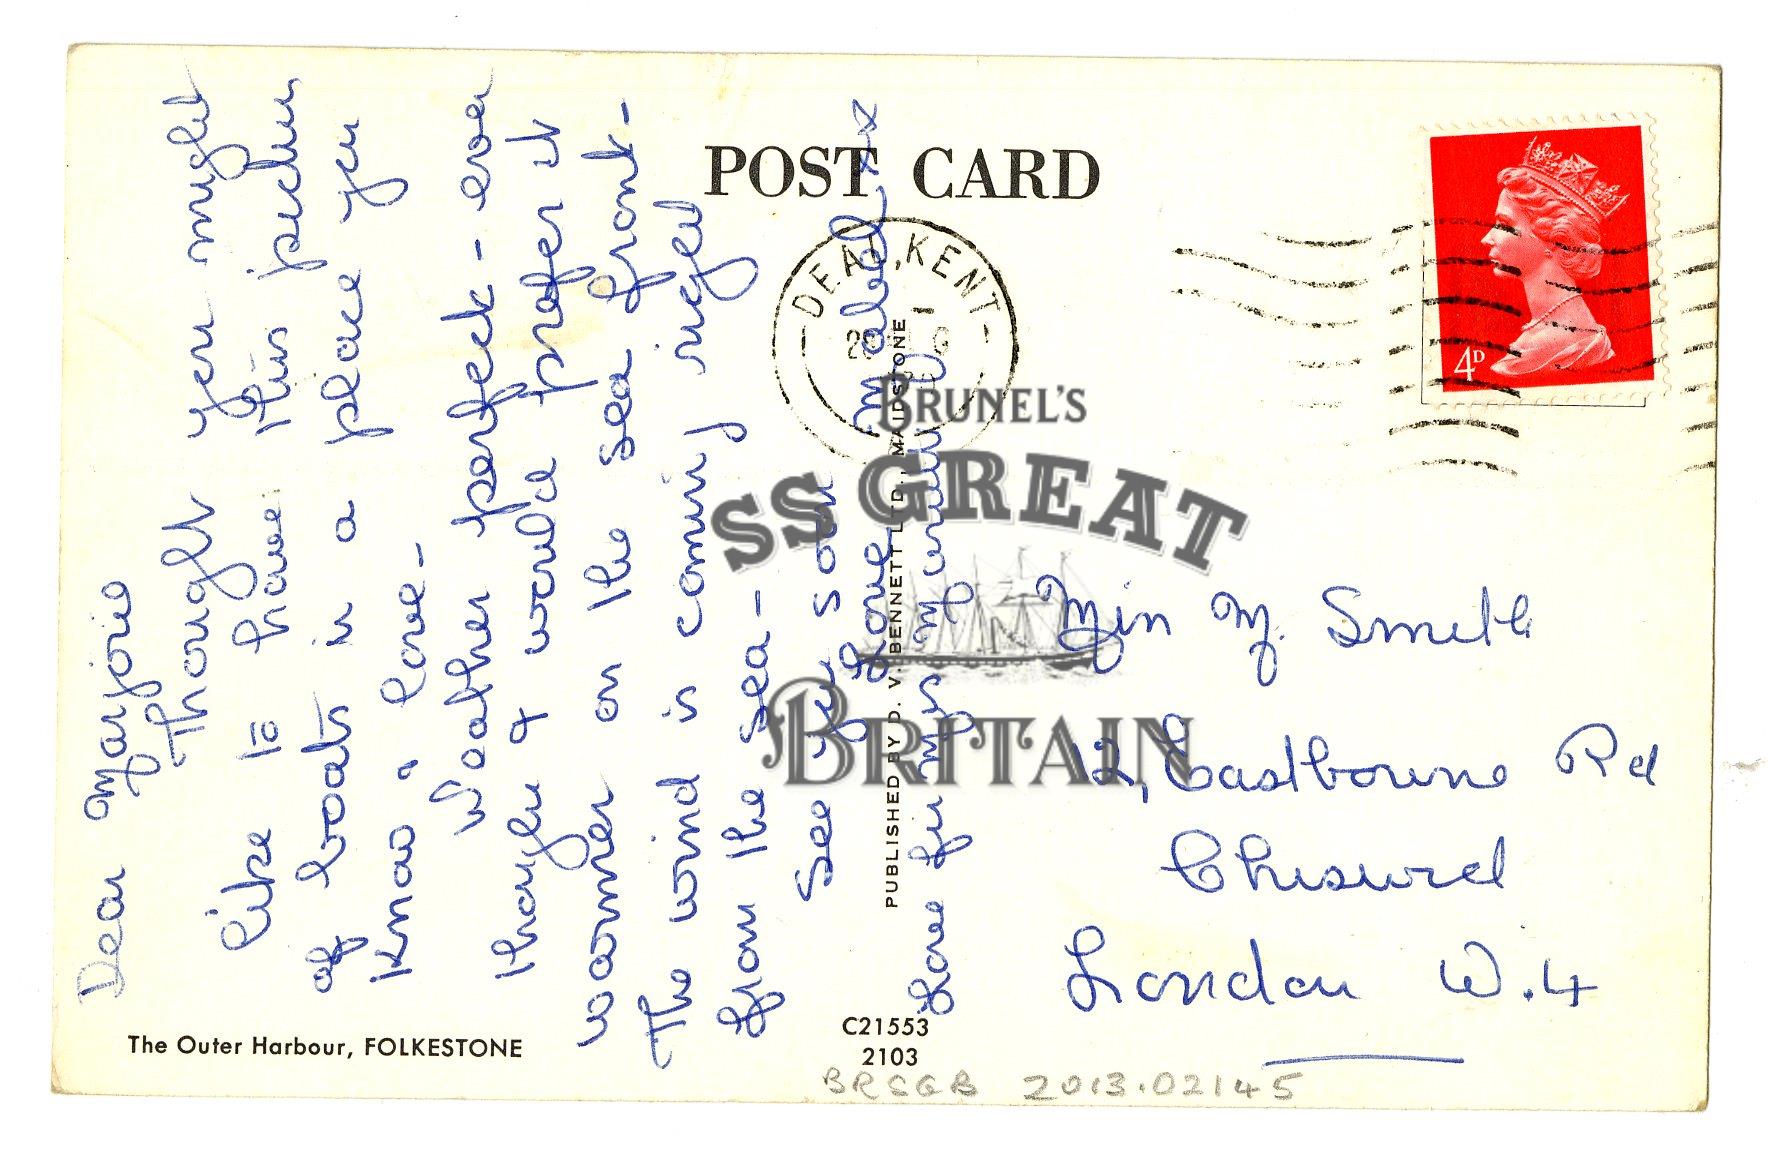 POST CARD
DEAL, KENT
4D
Dear Marjorie
Thought you might
like to have this picture
of boats in a place you
know & love -
Weather perfect - even
though I would prefer it
warmer on the sea front -
The wind is coming right
from the sea -
See you soon
Love Mabel xx
Love for Mrs
PUBLISHED BY D. V. BENNETT LTD., MAIDSTONE
BRUNEL'S
SS GREAT
BRITAIN
Miss M. Smith
12, Eastbourne Rd
Chiswick
London W.4
The Outer Harbour, FOLKESTONE
C21553
2103
BRSGB 2013.02145